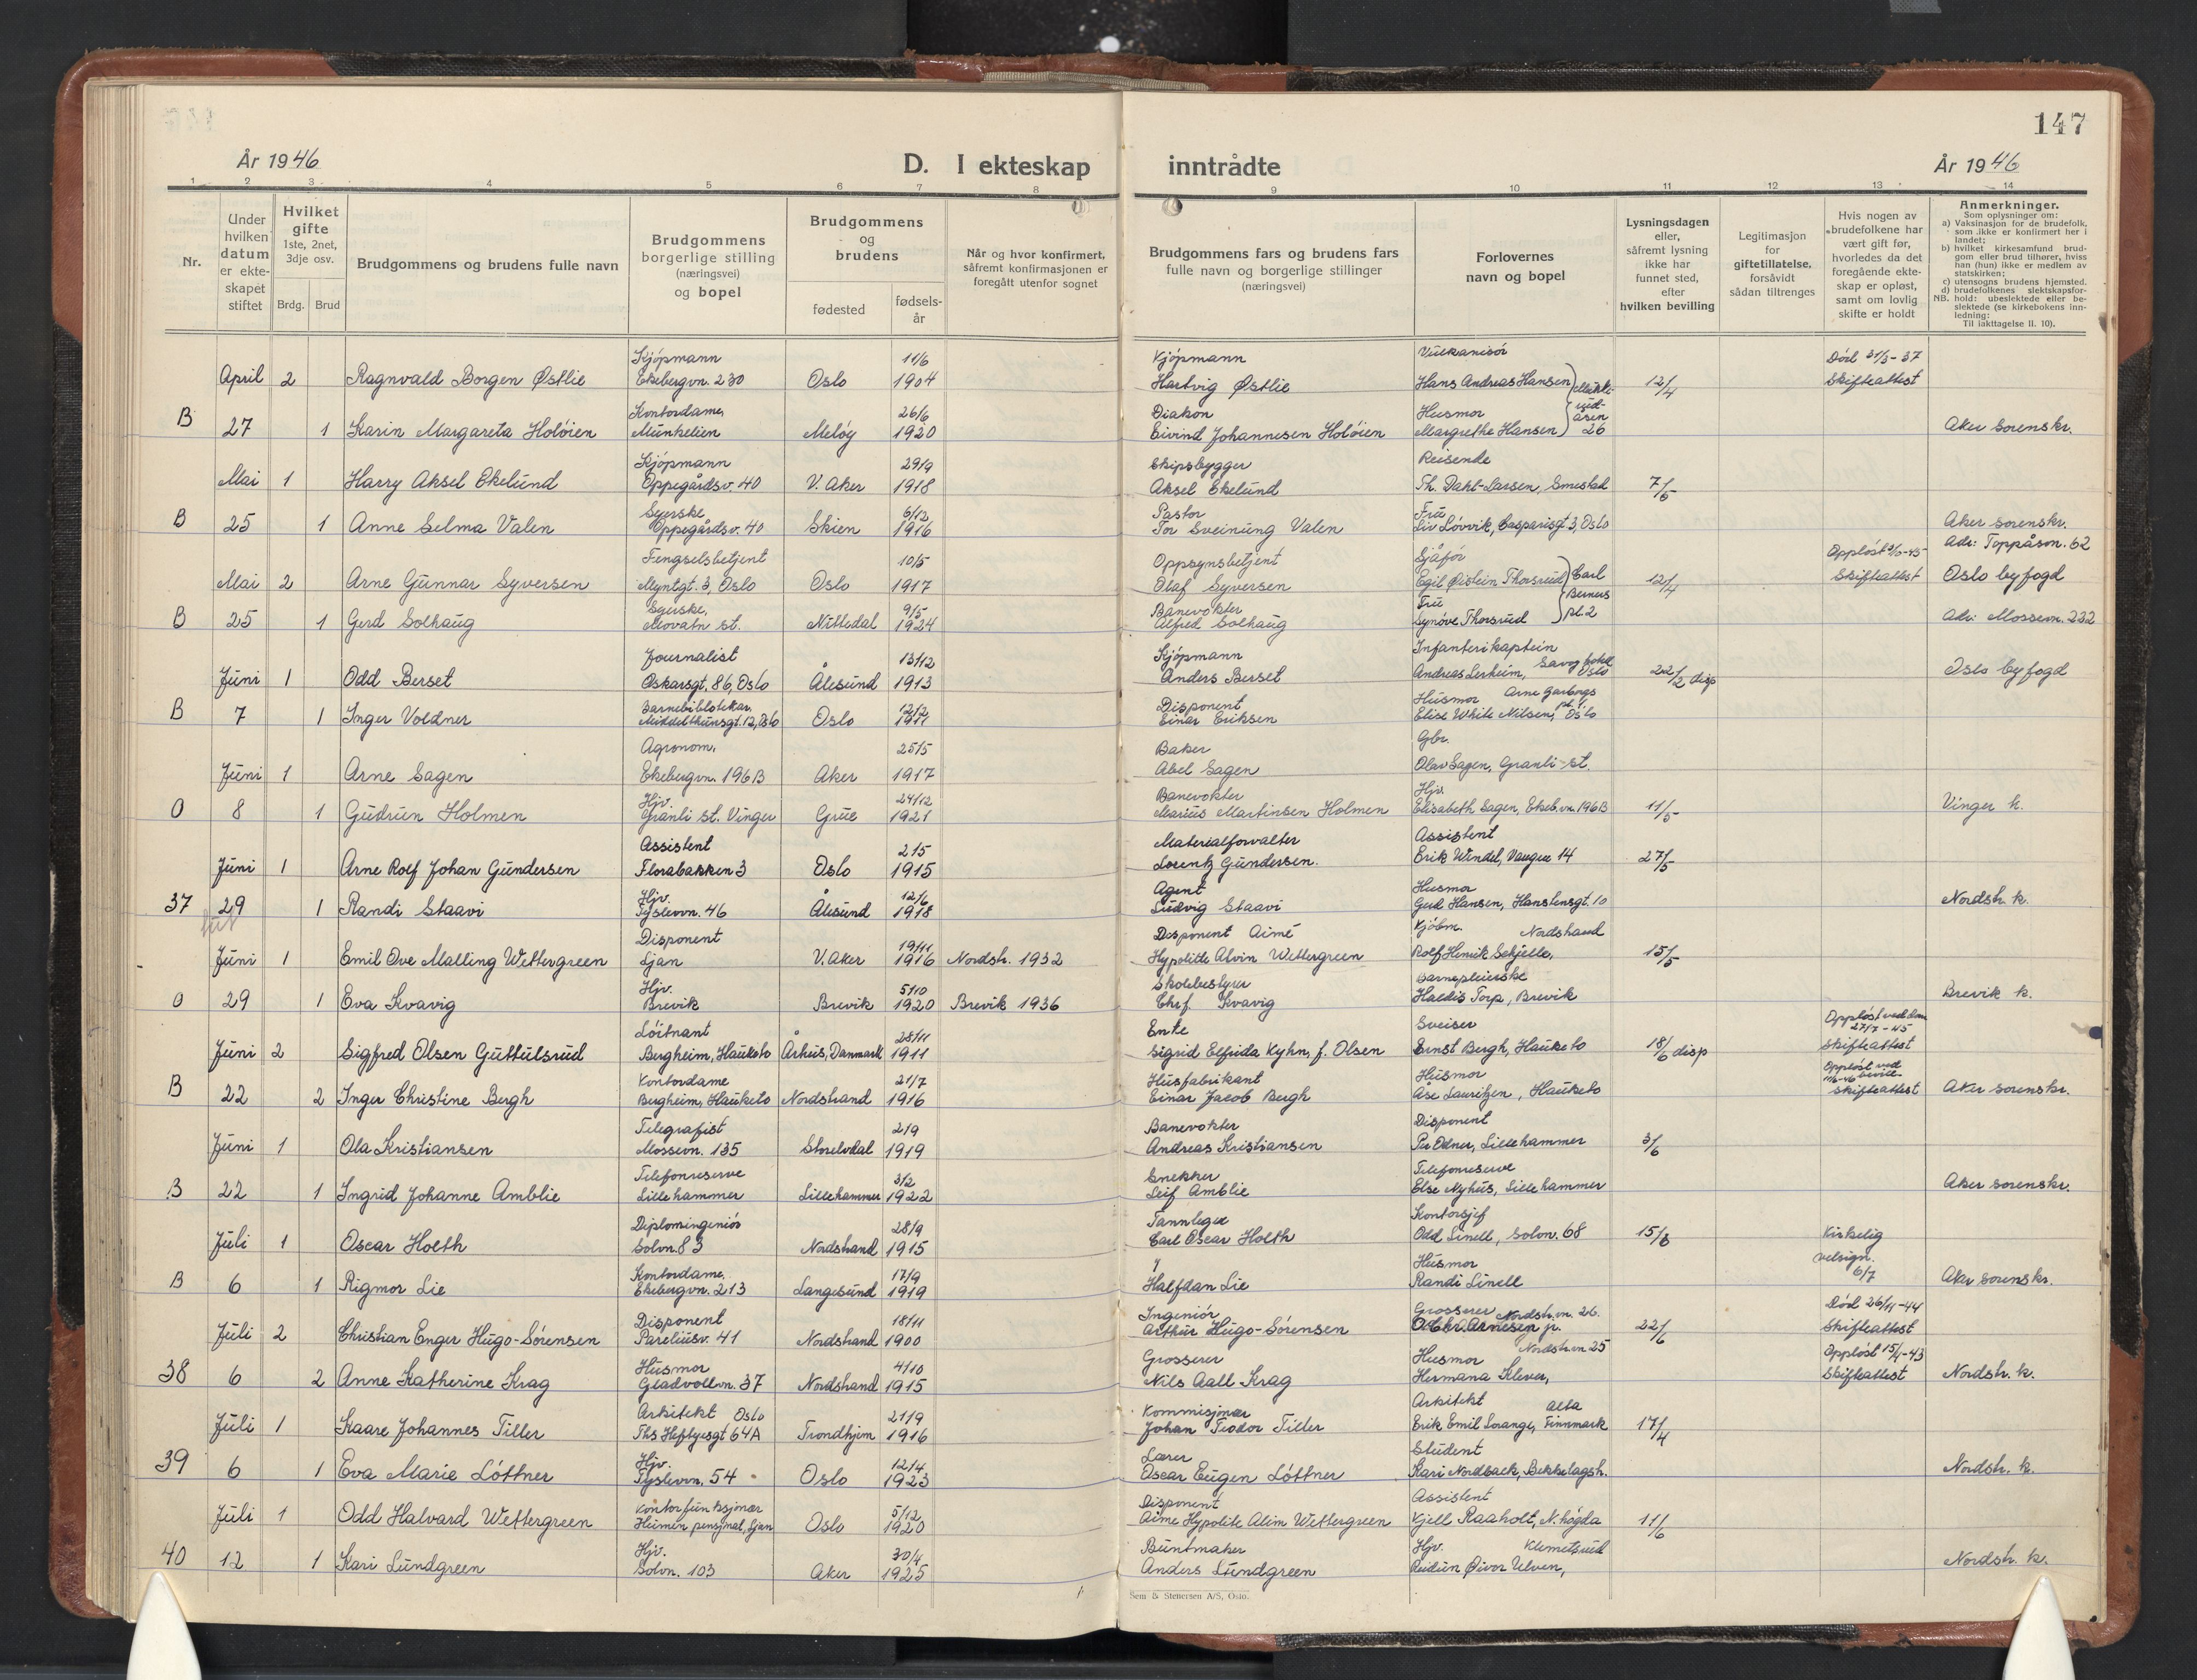 147
År 1946
D. I ekteskap
inntrådte
År 1946
1 2 3 4 5 6 7 8 9 10 11 12 13 14
Nr.
Under hvilken datum er ekteskapet stiftet
Hvilket gifte 1ste, 2net, 3dje osv.
Brdg. Brud
Brudgommens og brudens fulle navn
Brudgommens borgerlige stilling (næringsvei) og bopel
Brudgommens og brudens
fødested
fødselsår
Når og hvor konfirmert, såfremt konfirmasjonen er foregått utenfor sognet
Brudgommens fars og brudens fars fulle navn og borgerlige stillinger (næringsvei)
Forlovernes navn og bopel
Lysningsdagen eller, såfremt lysning ikke har funnet sted, efter hvilken bevilling
Legitimasjon for giftetillatelse, forsåvidt sådan tiltrenges
Hvis nogen av brudefolkene har vært gift før, hvorledes da det foregående ekteskap er opløst, samt om lovlig skifte er holdt
Anmerkninger.
Som oplysninger om:
a) Vaksinasjon for de brudefolk, som ikke er konfirmert her i landet;
b) hvilket kirkesamfund brudgom eller brud tilhører, hviss han (hun) ikke er medlem av statskirken;
c) utensogns brudens hjemsted.
d) brudefolkenes slektskapsforhold: ubeslektede eller beslektede (se kirkebokens innledning:
NB.
Til iakttagelse II. 10).
Kjøpmann 11/6 Kjøpmann Vulkanisør Død 31/3-37
April 2 Ragnvald Borgen Østlie Ekebergvn. 230 Oslo 1904 Hartvig Østlie Hans Andreas Hansen 12/4 Skifteattest
Kontordame 26/6 Diakon Husmor
B 27 1 Karin Margareta Holøien Munkelien Meløy 1920 Eivind Johannesen Holøien Margrethe Hansen 26 Aker sorenskr.
Kjøpmann 29/9 Skipsbygger Reisende
Mai 1 Harry Aksel Ekelund Oppegårdsv. 40 V. Aker 1918 Aksel Ekelund Th. Dahl-Larsen, Smestad 7/5
Syerske 6/12 Pastor Frue
B 25 1 Anne Selma Valen Oppegårdsv. 40 Skien 1916 Tor Sveinung Valen Liv Løvvik, Casparisgt. 3, Oslo Aker sorenskr.
Adr: Toppåsvn. 62
Fengselsbetjent 10/5 Oppsynsbetjent Sjåfør
Mai 2 Arne Gunnar Syversen Myntgt. 3, Oslo Oslo 1917 Olaf Syversen Egil Øistein Thorsrud Carl 12/4 Skifteattest Oslo byfogd
Syerske, 9/5 Banevokter Frue Berners
B 25 1 Gerd Solhaug Movatn st. Nittedal 1924 Alfred Solhaug Synøve Thorsrud pl. 2 Adr: Mossevn. 232
Journalist 13/12 Kjøpmann Infanterikaptein
Juni 1 Odd Berset Oskarsgt. 86, Oslo Ålesund 1913 Anders Berset Andreas Lerheim, Savoy hotel Oslo 22/2 disp Oslo byfogd
Barnebibliotekar, 12/2 Disponent Husmor Arne Garborgs
B 7 1 Inger Voldner Middelthunsgt. 12, Oslo Oslo 1911 Einar Eriksen Elise White Nilsen, Oslo
Agronom. 25/5 Baker Gbr.
Juni 1 Arne Sagen Ekebergvn. 196B Aker 1917 Abel Sagen Olav Sagen, Granli st.
Hjv. 24/12 Banevokter Hjv
O 8 1 Gudrun Holmen Granli st. Vinger Grue 1921 Marius Martinsen Holmen Elisabeth Sagen, Ekeb.vn. 196B 11/5 Vinger k.
Assistent 2/5 Materialforvalter Assistent
Juni 1 Arne Rolf Johan Gundersen Florabakken 3 Oslo 1915 Lorentz Gundersen. Erik Windel, Vangen 14 27/5
Hjv. 12/6 Agent Husmor
37 29 1 Randi Staavi Tyslevvn. 46 Ålesund 1918 Ludvig Staavi Gerd Hansen, Hanstensgt. 10 Nordstr. k.
Disponent 19/11 Disponent Aimé Kjøbm. Nordstrand
Juni 1 Emil Ove Malling Wettergreen Ljan V. Aker 1916 Nordstr. 1932 Hypolitte Alvin Wettergreen Rolf Henrik Schjelle, 15/5
Hjv. 5/10 Skolebestyrer Barnepleierske
O 29 1 Eva Kvavig Brevik Brevik 1920 Brevik 1936 Chrf. Kvavig Haldis Torp, Brevik Brevik k.
Løitnant 28/11 Enke Sveiser Oppløst ved dom 27/7-45
Juni 2 Sigfred Olsen Guttulsrud Bergheim, Hauketo Århus, Danmark 1911 Sigrid Elfrida Kyhn, f. Olsen Ernst Bergh, Hauketo 18/6 disp Skifteattest
Kontordame 21/7 Husfabrikant Husmor Oppløst ved
B 22 2 Inger Christine Bergh Bergheim, Hauketo Nordstrand 1916 Einar Jacob Bergh Åse Lauritzen, Hauketo Skifteattest Aker sorenskr.
Telegrafist 2/9 Banevokter Disponent
Juni 1 Ola Kristiansen Mossevn. 135 Storelvdal 1919 Andreas Kristiansen Per Odner, Lillehammer 3/6
Telefonreserve 3/2 Snekker Telefonreserve
B 22 1 Ingrid Johanne Amblie Lillehammer Lillehammer 1922 Leif Amblie Else Nyhus, Lillehammer Aker sorenskr.
Diplomingeniør 28/9 Tannlege Kontorsjef
Juli 1 Oscar Holth Solvn. 83 Nordstrand 1915 Carl Oscar Holth Odd Linell, Solvn. 68 15/6 Kirkelig
Kontordame. 17/9 Husmor velsign.
B 6 1 Rigmor Lie Ekebergvn. 213 Langesund 1919 Halfdan Lie Randi Linell 6/7 Aker sorenskr.
Disponent 18/11 Ingeniør Grosserer Nordstr.vn. 26. Død 26/11-44
Juli 2 Christian Enger Hugo-Sørensen Pareliusv. 41 Nordstrand 1900 Arthur Hugo-Sørensen Arnesen jr. 22/6 Skifteattest
Husmor 4/10 Grosserer Husmor Nordstr.vn 25 Oppløst 15/4-43
38 6 2 Anne Katherine Krag Gladvollvn. 37 Nordstrand 1915 Nils Aall Krag Hermana Klever, Skifteattest Nordstr. k.
Arkitekt Oslo 21/9 Kommisjonær Arkitekt Alta
Juli 1 Kaare Johannes Tiller Ths Heftyesgt 64A Trondhjem 1916 Johan Teodor Tiller Erik Emil Lorange, Finnmark 17/4
Hjv. 12/4 Lærer Student
39 6 1 Eva Marie Løttner Tyslevvn. 54 Oslo 1923 Oscar Eugen Løttner Kari Nordback, Bekkelagsh. Nordstr. k.
Kontorfunksjonær 5/12 Disponent Assistent
Juli 1 Odd Halvard Wettergreen Heimen pensjonat, Ljan Oslo 1920 Aime Hypolite Alim Wettergreen Kjell Raaholt, N. høgda 11/6
Hjv. 30/4 Buntmaker Hjv. Klemetsrud
40 12 1 Kari Lundgreen Solvn. 103 Aker 1925 Anders Lundgreen Reidun Øivor Ulven, Nordstr. k.
Sem & Stenersen A/S, Oslo.